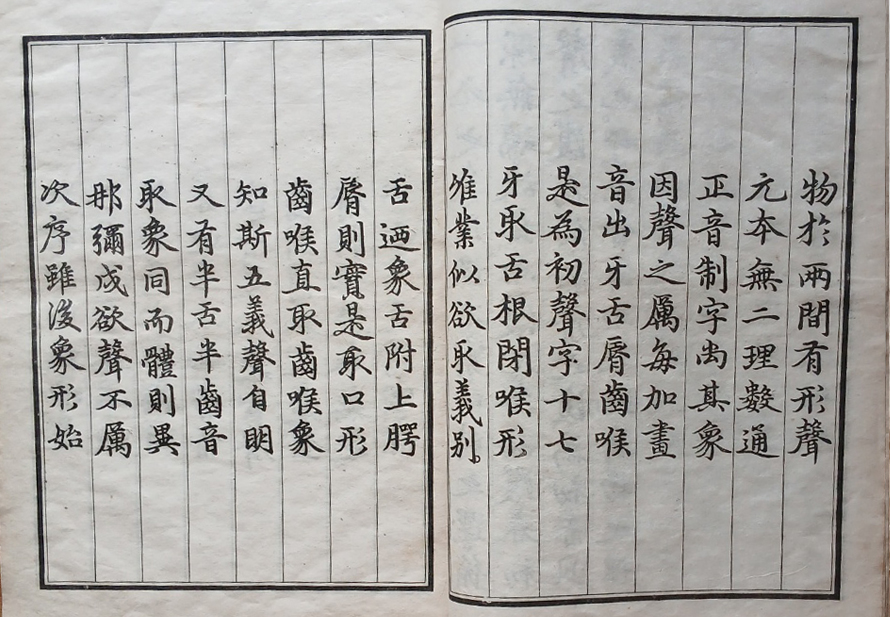 物於兩間有形聲
元本無二理數通
正音制字尙其象
因聲之厲每加畫
音出牙舌脣齒喉
是為初聲字十七
牙取舌根閉喉形
唯業似欲取義別。
舌迺象舌附上腭
脣則實是取口形
齒喉直取齒喉象
知斯五義聲自明
又有半舌半齒音
取象同而體則異
那彌戌欲聲不厲
次序雖後象形始